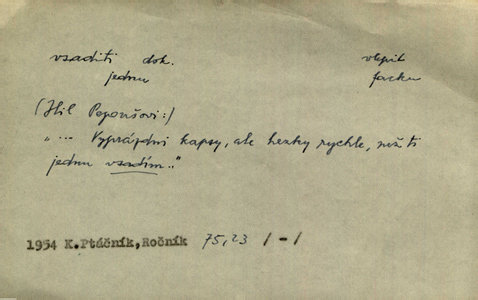 vsaditi dok. vlepit
jednu facku
(Hil Peponšovi:)
"... Vyprázdni kapsy, ale hezky rychle, než ti
jednu vsadím.."
1954 K.Ptáčník, Ročník 75,23 /-/